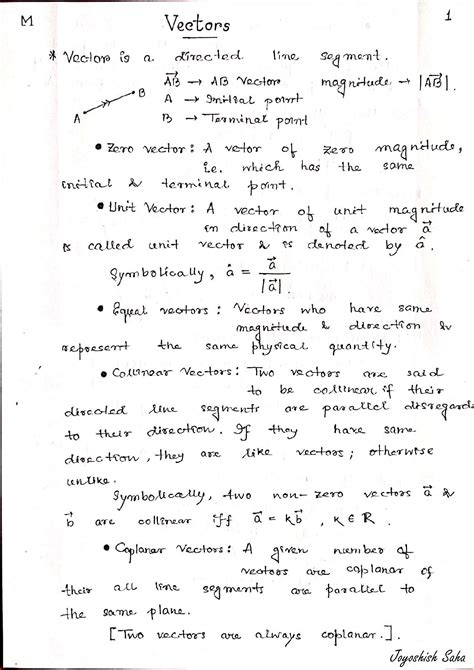 M
Vectors
1
* Vectors is a directed line segment.
A B
AB⃗ → AB Vector magnitude → |AB⃗|.
A → Initial point
B → Terminal point
• Zero vector: A vetor of zero magnitude,
i.e. which has the same
initial & terminal point.
• Unit Vector: A vector of unit magnitude
in direction of a vector a⃗
is called unit vector & is denoted by â.
Symbolically, â = a⃗ / |a⃗|.
• Equal vectors: Vectors who have same
magnitude & direction &
represent the same physical quantity.
• Collinear Vectors: Two vectors are said
to be collinear if their
directed line segments are parallel disregards
to their direction. If they have same
direction, they are like vectors; otherwise
unlike.
Symbolically, two non-zero vectors a⃗ &
b⃗ are collinear iff a⃗ = k b⃗, k ∈ R.
• Coplanar Vectors: A given number of
vectors are coplanar if
their all line segments are parallel to
the same plane.
[Two vectors are always coplanar.].
Joyoshish Saha